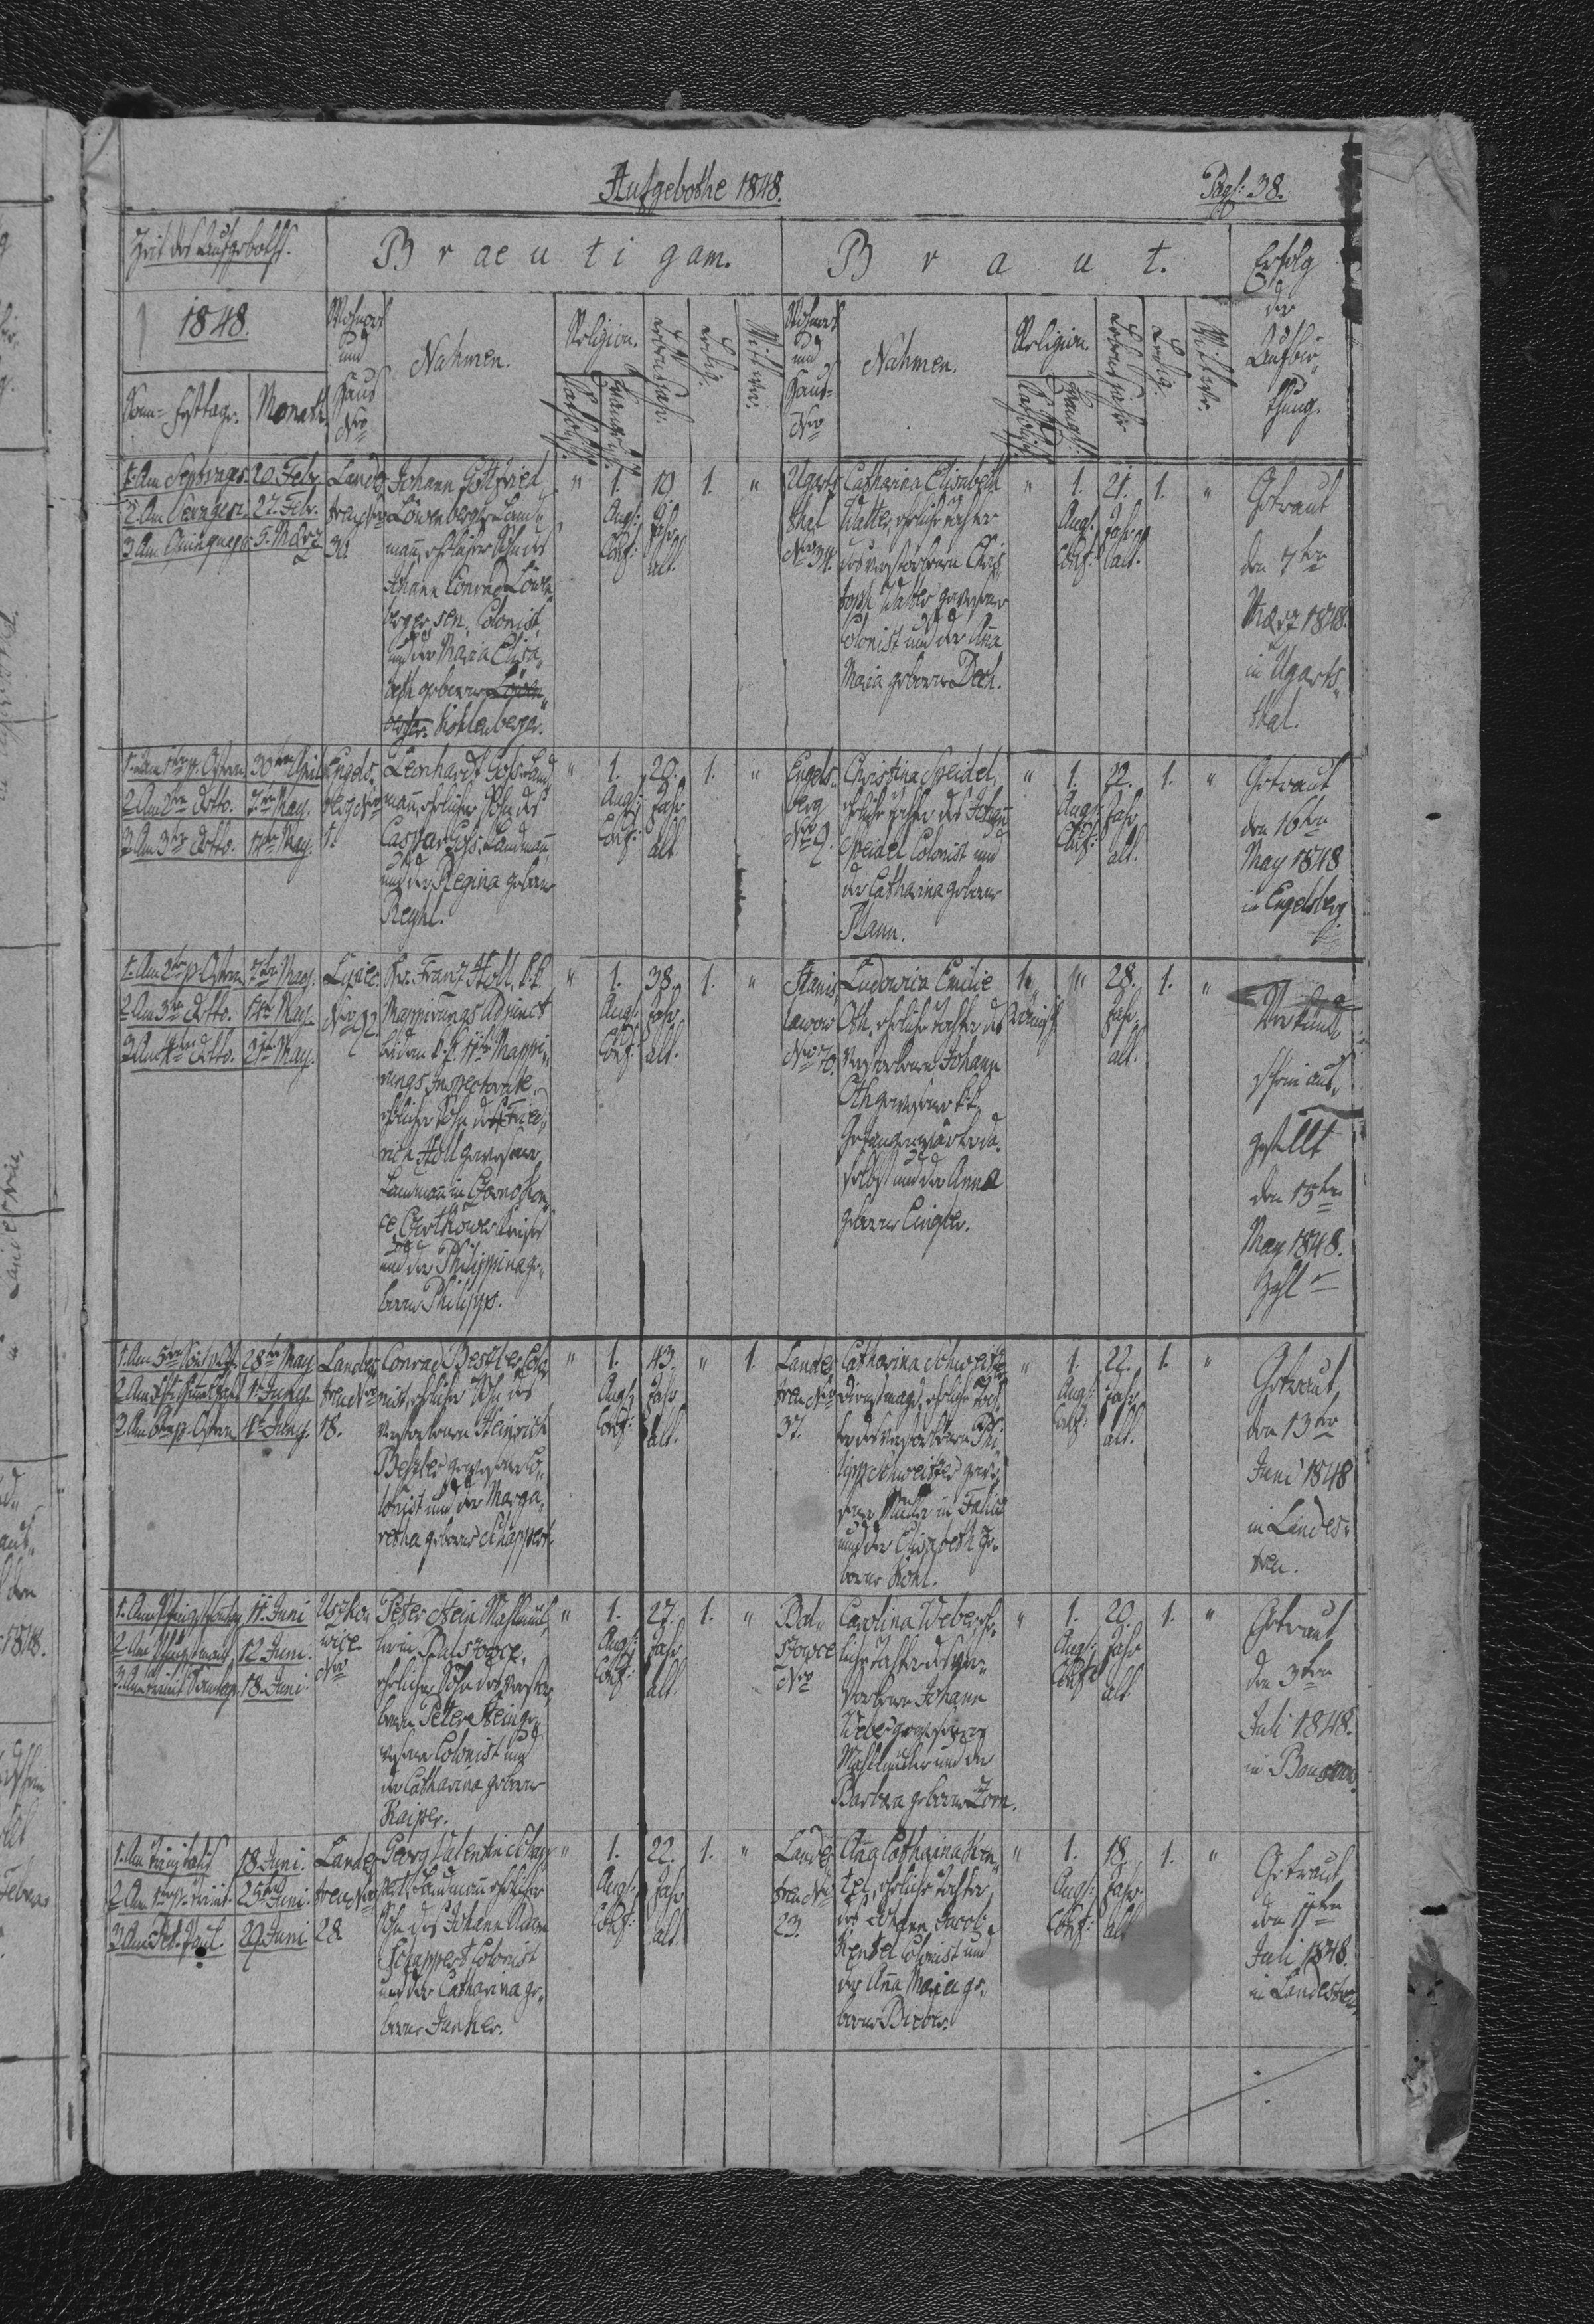 Aufgebothe 1848.
Pag: 38.
Zeit des Aufgeboths.
Braeutigam.
Braut.
Erfolg
der
Aufbie„
thung.
1848.
Sonn- Festtage.
Monath.
Wohnort
und
Haus
Nro
Nahmen.
Religion.
Katholisch
Evangelisch
Lebensjahr.
Ledig.
Wittwer.
Wohnort
und
Haus-
Nro
Nahmen.
Religion.
Katholisch
Evangelisch
Lebensjahr
Ledig.
Wittwe.
1. Am Septuages. 20. Febr.
2. Am Sexagesi. 27. Febr.
3. Am Quinquages. 5. März
Landes„
treu Nro
31.
Johann Gottfried
Löwenberger Land„
mann, ehelicher Sohn des
Johann Conrad Löwen„
berger sen. Colonist,
und der Maria Elisa„
beth geborne Löwen„
berger. Kohlenberger.
"
1.
Augs:
Conf:
19
Jahr
alt.
1.
"
Ugarts
thal
Nro 34.
Catharina Elisabeth
Walter, eheliche Tochter
des verstorbenen Chris„
toph Walter gewesener
Colonist und der Anna
Maria geborne Dech.
"
1.
Augs:
Conf:
21.
Jahr
alt.
1.
"
Getraut
den 7ten
März 1848.
in Ugarts„
thal.
1. Am 1ten p. Ostern 30ten April
2. Am 2ten detto. 7ten May.
3. Am 3ten detto. 14ten May.
Engels„
berg Nro
1.
Leonhardt Goss Land„
mann, ehelicher Sohn des
Caspar Goss, Landmann,
und der Regina geborne
Reghl.
"
1.
Augs:
Conf:
20.
Jahr
alt
1.
"
Engels„
berg
Nro 9.
Christina Speidel,
eheliche Tochter des Johann
Speidel Colonist und
der Catharina geborne
Mann.
"
1.
Augs:
Conf:
22.
Jahr
alt.
1.
"
Getraut
den 16ten
May 1848
in Engelsberg
1. Am 2ten p. Ostern 7ten May.
2. Am 3ten detto. 14ten May.
3. Am 4ten detto. 21ten May.
Lysiec
Nro 12.
Hr. Franz Holl, k.k.
Mappirungs Adjunct
bei dem k.k. 11ten Mappi„
rungs Inspectorate,
ehelicher Sohn des Fried„
rich Holl gewesener
Landmann in
Kreises
und der Philippina ge„
borne Philipps.
"
1.
Augs:
Conf:
38.
Jahr.
alt.
1.
"
Stanis„
lawow
Nro 70.
Ludowica Emilie
Oth, eheliche Tochter des
verstorbenen Johann
Oth gewesener k.k.
Gefangenwärter da„
selbst und der Anna
geborne Lingler.
1.
"
28.
Jahr.
alt.
1.
"
Verkünd
schein aus„
gestellt
den 15ten
May 1848.
Zahl
28ten May
1ten Juny.
4ten Juny.
Landes
treu Nro
18.
Conrad Beszler Colo
nist, ehelicher Sohn des
verstorbenen Heinrich
Beszler gewesener Co„
lonist und der Marga„
retha geborne Schappert.
"
1.
Augs:
Conf:
43.
Jahr
alt.
"
1.
Landes
treu Nro
37.
Catharina Schweitzer
Dienstmagd, eheliche Toch„
ter des verstorbenen Phi„
lipp Schweitzer gewe„
sener Müller in
und der Elisabeth ge„
borne Kohl.
"
1.
Augs:
Conf:
22.
Jahr
alt.
1.
"
Getraut
den 13ten
Juni 1848
in Landes„
treu.
1. Am Pfingstsontag 11. Juni
2. Am Pfingstmont. 12. Juni.
3. Am Trinit. Sonntag 18. Juni
Uszko„
wice
Nro
Peter Stein Mahlmül„
ler in
ehelicher Sohn des verstor
benen Peter Stein ge„
wesener Colonist und
der Catharina geborne
Kaiper.
"
1.
Augs:
Conf:
27.
Jahr
alt.
1.
"
Nro
Carolina Weber, ehe„
liche Tochter des ver„
storbenen Johann
Weber gewesener
Mahlmüller und der
Barbara geborne Zorn.
"
1.
Augs:
Conf:
20.
Jahr
alt.
1.
"
Getraut
den 3ten
Juli 1848.
in
1. Am Trinitatis 18. Juni.
2. Am 1ten p. Trinit. 25ten Juni.
3. Am Pet. Paul 29. Juni
Landes
treu Nro
28
Georg Valentin Schap„
pert Landmann ehelicher
Sohn des Johann Adam
Schappert Colonist
und der Catharina ge„
borne Junker.
"
1.
Augs:
Conf:
22.
Jahr
alt.
1.
"
Landes
treu Nro
23.
Anna Catharina Ken„
tel, eheliche Tochter
des Johann Jacob
Kentel Colonist und
der Anna Maria ge„
borne Bieber.
"
1.
Augs:
Conf:
18.
Jahr
alt
1.
"
Getraut
den 11ten
Juli 1848.
in Landestreu.